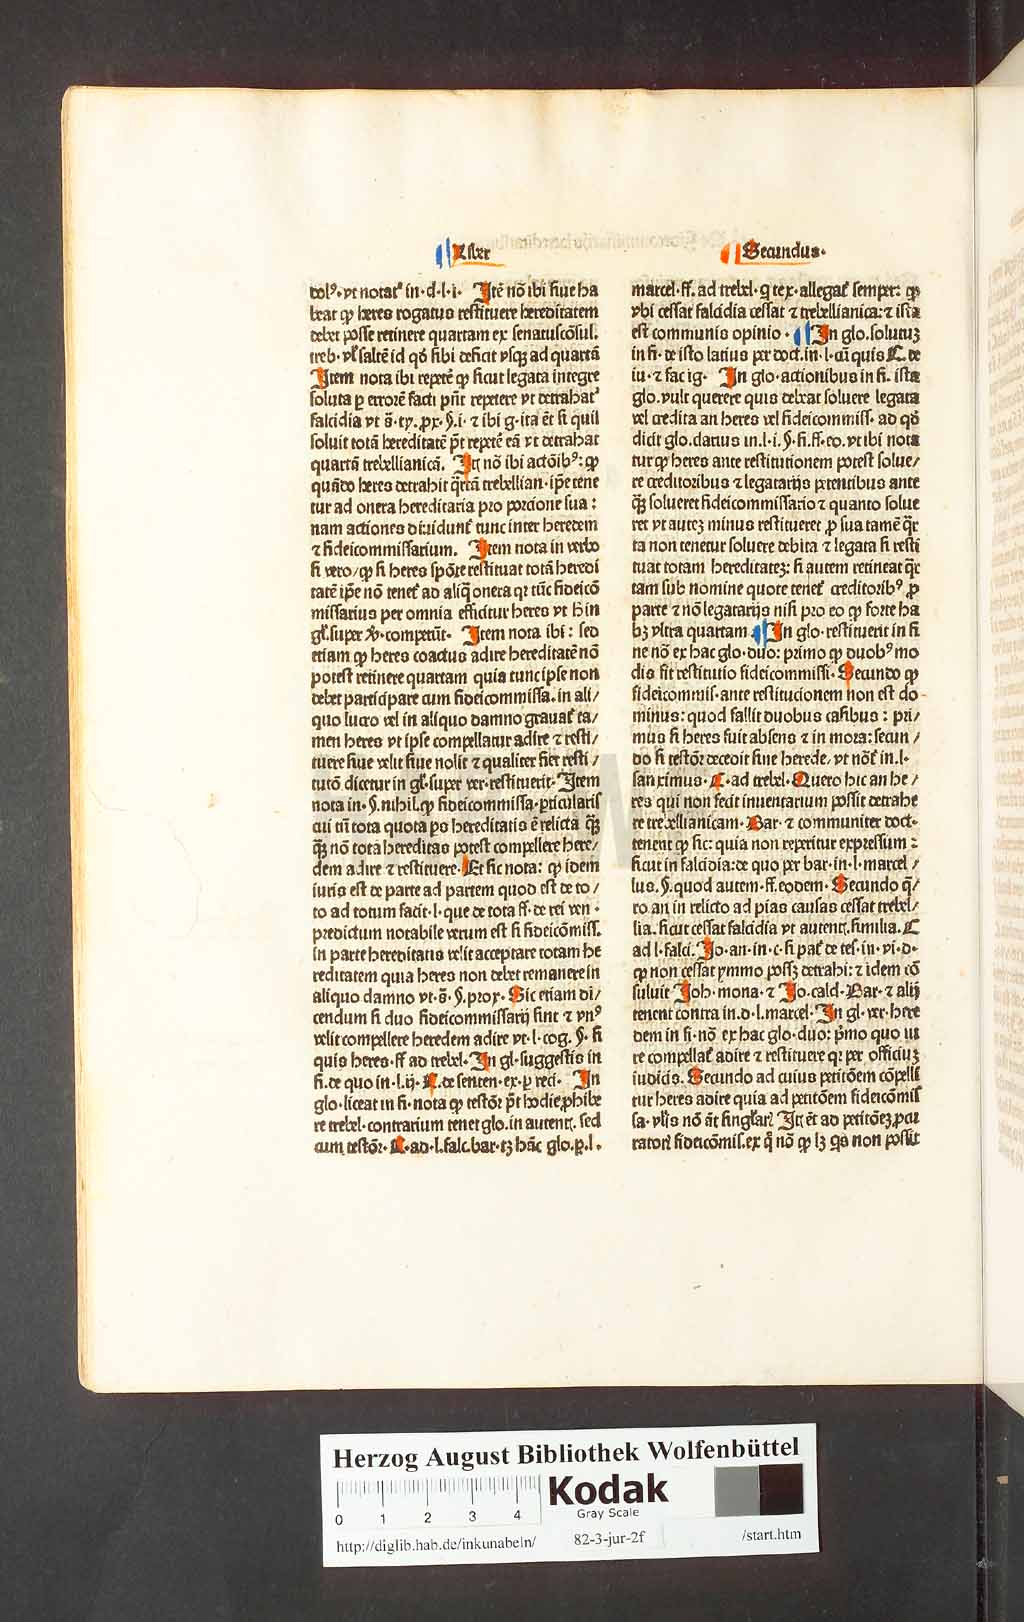 Liber
Secundus.
dolꝰ. vt notat᷑ in. d. l. i. Itē nō ibi siue ha
beat ꝙ heres rogatus restituere hereditatem
debet posse retinere quartam ex senatuscōsul.
treb. vl̓ saltē id qd̓ sibi deficit vsqꝫ ad quartā
Item nota ibi repetē ꝙ sicut legata integre
soluta ꝑ errorē facti pn̄t repetere vt detrahat᷑
falcidia vt s̄. ty. ꝓx. §. i. ⁊ ibi g. ita ēt si quis
soluit totā hereditatē pt̄ repetē eā vt detrahat
quartā trebellianicā. Itē nō ibi actōibꝰ: ꝙ
quādo heres detrahit q̄rtā trebellian. ip̄e tene
tur ad onera hereditaria pro porcione sua:
nam actiones diuidunt᷑ tunc inter heredem
⁊ fideicommissarium. Item nota in verbo
si vero/ ꝙ si heres spōte restituat totā heredi
tatē ip̄e nō tenet᷑ ad aliq̄ onera qꝛ tūc fideicō
missarius per omnia efficitur heres vt h̄ in
gl̓. super ꝟ. competūt. Item nota ibi: sed
etiam ꝙ heres coactus adire hereditatē nō
potest retinere quartam quia tunc ipse non
debet participare cum fideicommissa. in ali/
quo lucro vel in aliquo damno grauat᷑ ta/
men heres vt ipse compellatur adire ⁊ resti/
tuere siue velit siue nolit ⁊ qualiter fiet resti/
tutō dicetur in gl̓. super ver. restituerit. Item
nota in. §. nihil. ꝙ fideicommissa. pticularis
cui tn̄ tota quota ps hereditatis ē relicta qͣꝫ
qͣꝫ nō tota hereditas potest compellere here/
dem adire ⁊ restituere. Et sic nota: ꝙ idem
iuris est de parte ad partem quod est de to/
to ad totum facit. l. que de tota ff. de rei ven.
predictum notabile verum est si fideicōmiss.
in parte hereditatis velit acceptare totam he
reditatem quia heres non debet remanere in
aliquo damno vt. s̄. §. prox. Sic etiam di/
cendum si duo fideicommissarij sint ⁊ vnꝰ
velit compellere heredem adire vt. l. cog. §. si
quis heres. ff ad trebel. In gl. suggestis in
fi. de quo in. l. ij. C. de senten. ex. ꝑ reci. In
glo. liceat in fi. nota ꝙ testōr pt̄ hodie ꝓhibe
re trebel. contrarium tenet glo. in autent̓. sed
cum testōr. C. ad. l. falc. bar. tꝫ hāc glo. ꝑ. l.
marcel. ff. ad trebel. q tex. allegat᷑ semper: ꝙ
vbi cessat falcidia cessat ⁊ trebellianica: ⁊ ista
est communis opinio. In glo. solutuꝫ
in fi. de isto latius per doct. in. l. cū quis C. de
iu. ⁊ fac ig. In glo. actionibus in fi. ista
glo. vult querere quis debeat soluere legata
vel credita an heres vel fideicommiss. ad qd̓
dicit glo. datus in. l. i. §. fi. ff. eo. vt ibi nota
tur ꝙ heres ante restitutionem potest solue/
re creditoribus ⁊ legatarijs petentibus ante
qͣꝫ solueret fideicommissario ⁊ quanto solue
ret vt auteꝫ minus restitueret ꝓ sua tamē q̄r
ta non tenetur soluere debita ⁊ legata si resti
tuat totam hereditateꝫ: si autem retineat q̄r
tam sub nomine quote tenet᷑ creditoribꝰ ꝓ
parte ⁊ nō legatarijs nisi pro eo ꝙ forte ha
bꝫ vltra quartam. In glo. restituerit in fi
ne nō ex hac glo. duo: primo ꝙ duobꝰ mo
dis fit restitutio fideicommissi. Secundo ꝙ
fideicommis. ante restitucionem non est do-
minus: quod fallit duobus casibus: pri/
mus si heres fuit absens ⁊ in mora: secun/
do si testōr decedit sine herede. vt nōt᷑ in. l.
sanximus. C. ad trebel. Quero hic an he/
res qui non fecit inuentarium possit detrahe
re trebellianicam. Bar. ⁊ communiter doct.
tenent ꝙ sic: quia non reperitur expressum:
sicut in falcidia: de quo per bar. in. l. marcel/
lus. §. quod autem. ff. eodem. Secundo q̄/
ro an in relicto ad pias causas cessat trebel/
lia. sicut cessat falcidia vt autent̓. similia. C
ad l. falci. Jo. an. in. c. si pat᷑ de tes. in. vi. d.
ꝙ non cessat ymmo possꝫ detrahi: ⁊ idem cō
suluit Joh. mona. ⁊ Jo. cald. Bar. ⁊ alij
tenent contra in. d. l. marcel. In gl. ver. here
dem in fi. nō ex hac glo. duo: pͥmo quo iu
re compellat᷑ adire ⁊ restituere qꝛ per officiuꝫ
iudicis. Secundo ad cuius petitōem cōpelli
tur heres adire quia ad petitōem fideicōmis
sa. vl̓is nō āt singl̓arꝭ Itē ēt ad petitōeꝫ ꝓcu
ratorꝭ fideicōmis. ex q̄ nō ꝙ lꝫ qͥs non possit
Herzog August Bibliothek Wolfenbüttel
0 1 2 3 4
Kodak
Gray Scale
http://diglib.hab.de/inkunabeln/ 82-3-jur-2f /start.htm